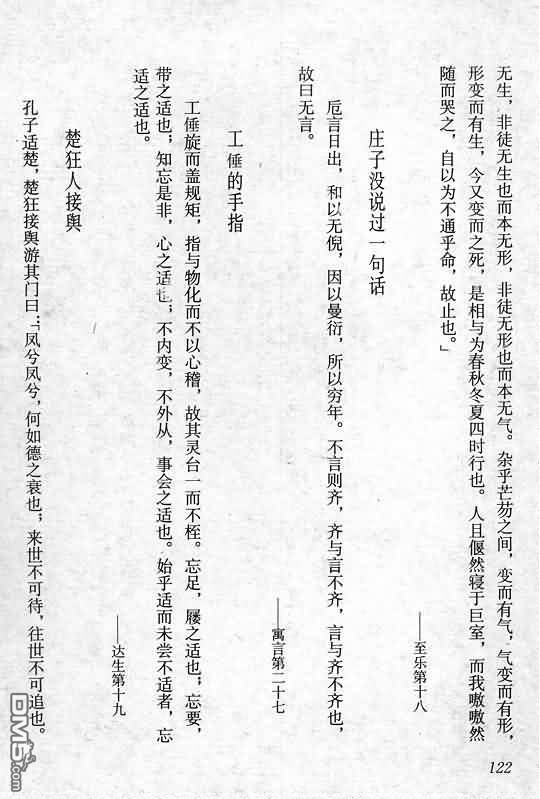 无生，非徒无生也而本无形，非徒无形也而本无气。杂乎芒芴之间，变而有气，气变而有形，
形变而有生，今又变而之死，是相与为春秋冬夏四时行也。人且偃然寝于巨室，而我嗷嗷然
随而哭之，自以为不通乎命，故止也。」
——至乐第十八
庄子没说过一句话
卮言日出，和以无倪，因以曼衍，所以穷年。不言则齐，齐与言不齐，言与齐不齐也，
故曰无言。
——寓言第二十七
工倕的手指
工倕旋而盖规矩，指与物化而不以心稽，故其灵台一而不桎。忘足，屦之适也；忘要，
带之适也；知忘是非，心之适也；不内变，不外从，事会之适也。始乎适而未尝不适者，忘
适之适也。
——达生第十九
楚狂人接舆
孔子适楚，楚狂接舆游其门曰：「凤兮凤兮，何如德之衰也；来世不可待，往世不可追也。
122
DM5.com